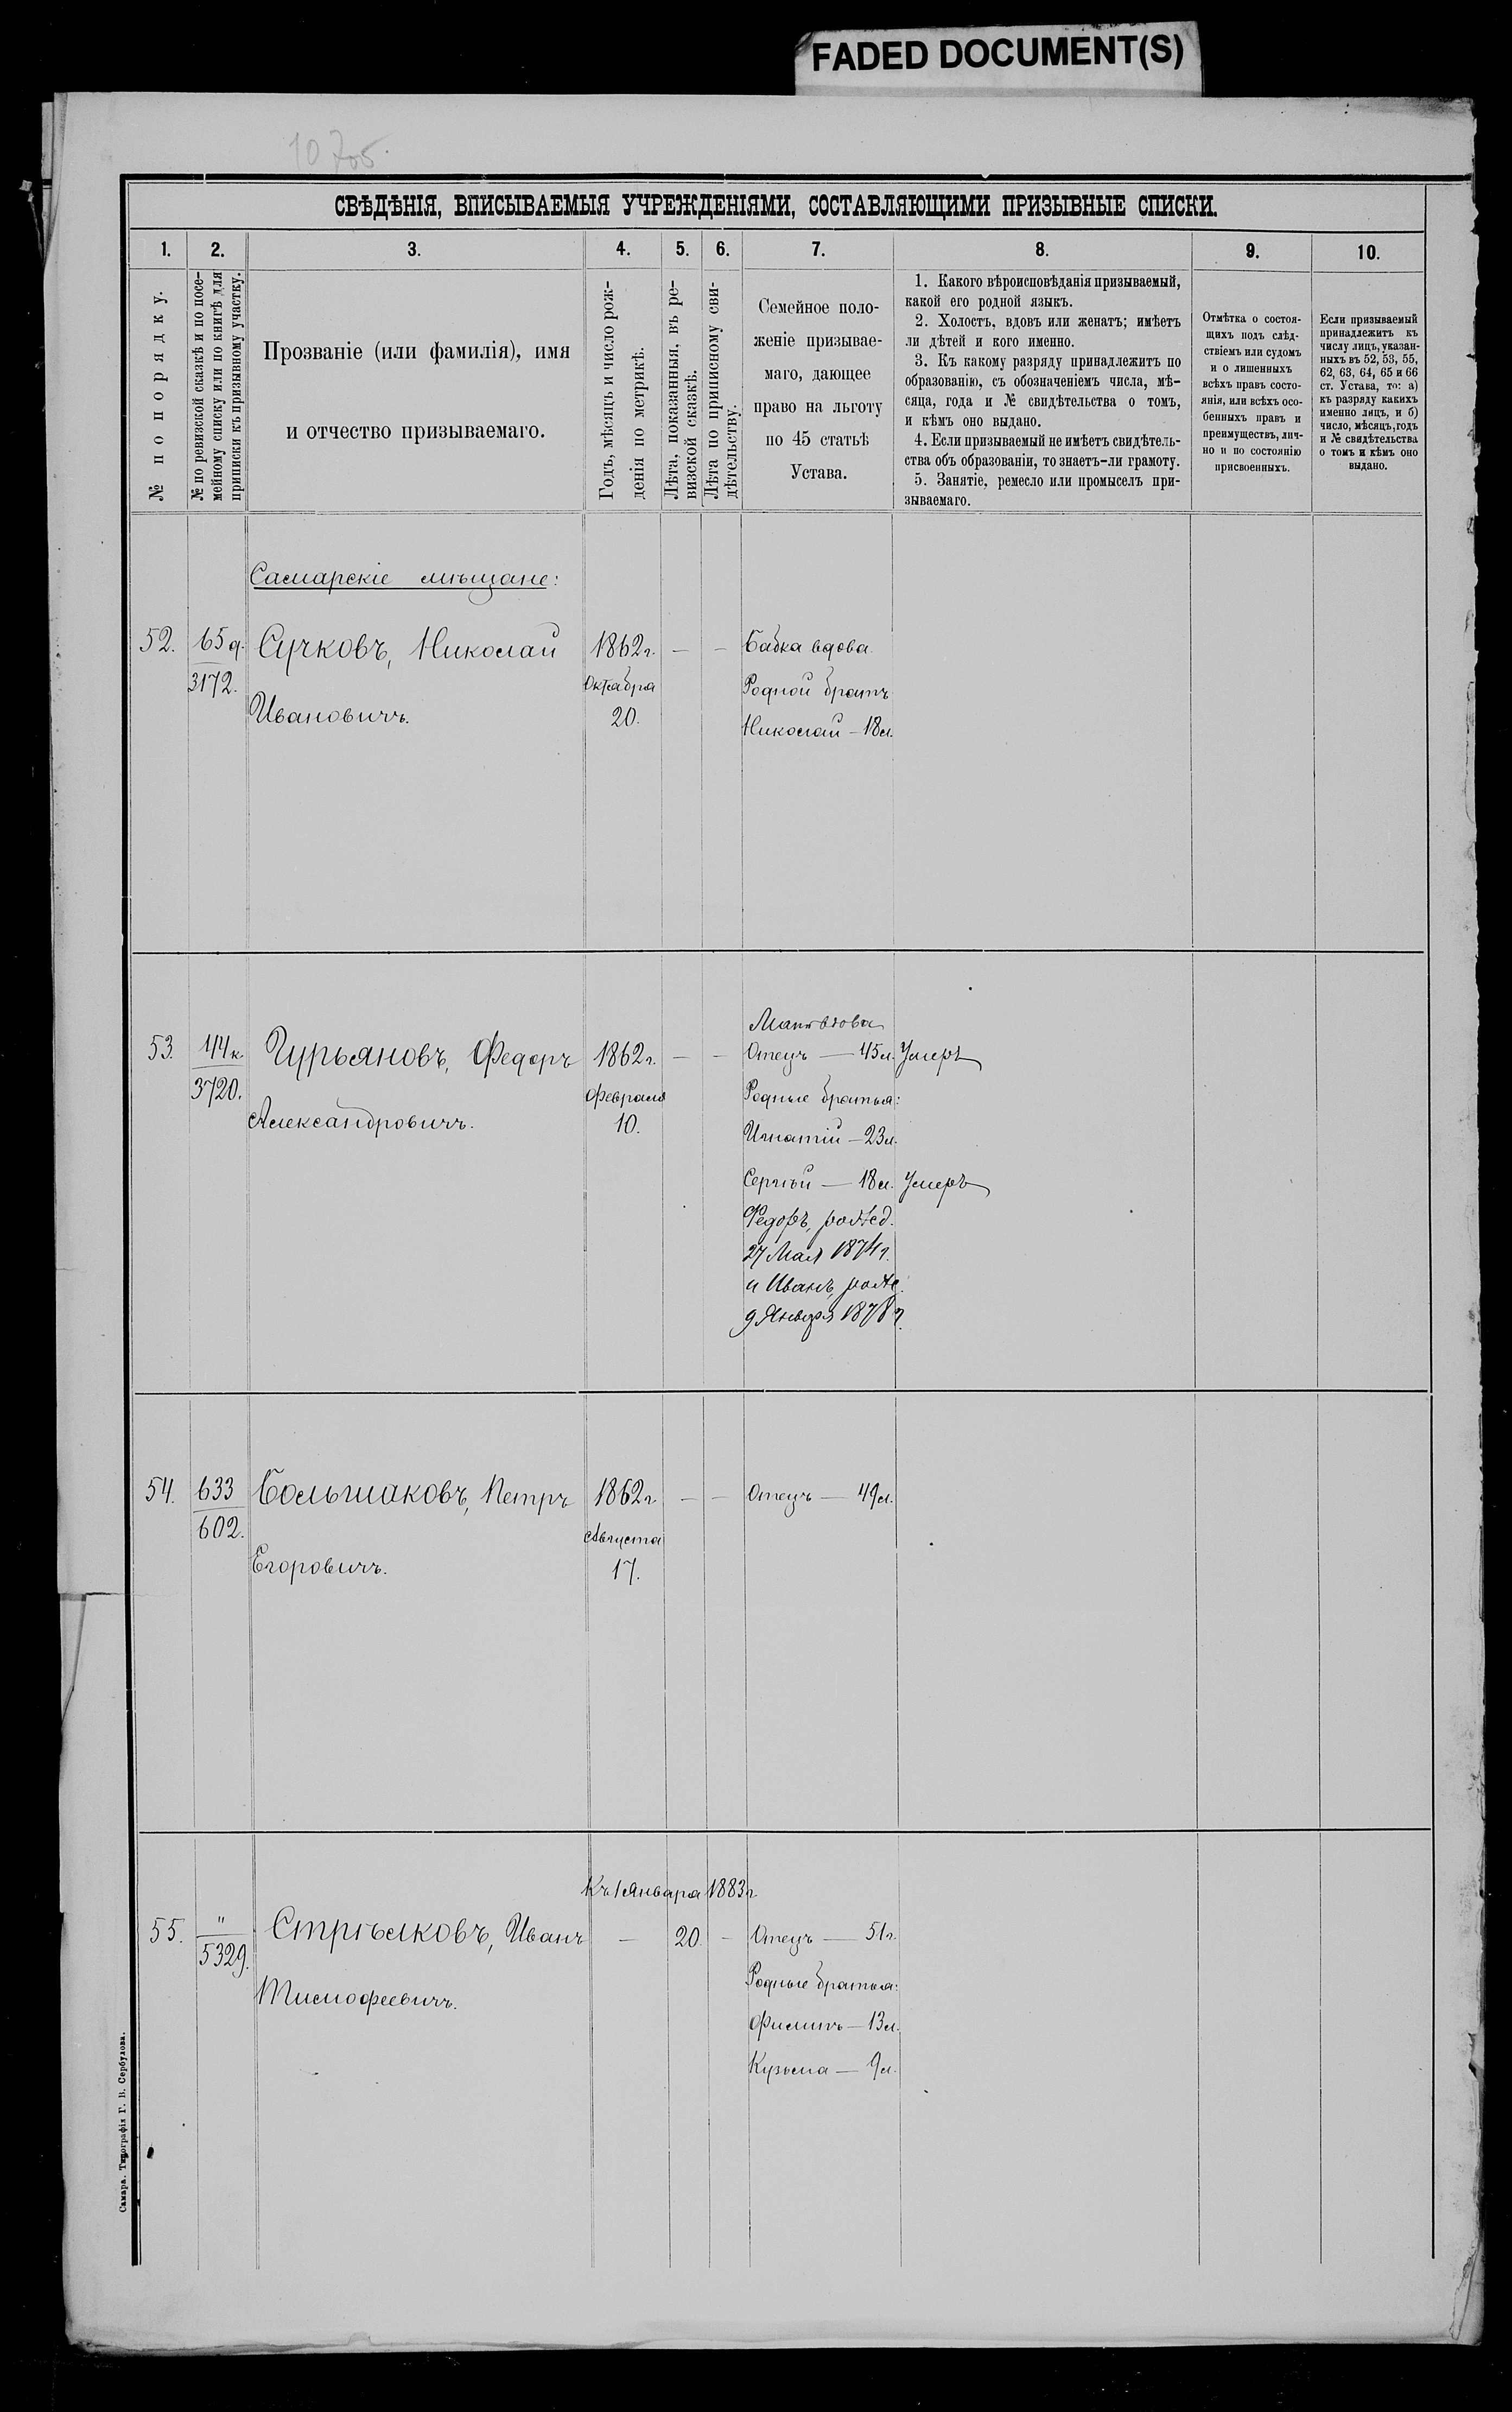 FADED DOCUMENT(S)
СВѢДѢНІЯ, ВПИСЫВАЕМЫЯ УЧРЕЖДЕНІЯМИ, СОСТАВЛЯЮЩИМИ ПРИЗЫВНЫЕ СПИСКИ.
1.
2.
3.
4.
5.
6.
7.
8.
9.
10.
№ по порядку.
№ по ревизской сказкѣ и по посе-
мейному списку или по книгѣ для
приписки къ призывному участку.
Прозваніе (или фамилія), имя
и отчество призываемаго.
Годъ, мѣсяцъ и число рож-
денія по метрикѣ.
Лѣта, показанныя, въ ре-
визской сказкѣ.
Лѣта по приписному сви-
дѣтельству.
Семейное поло-
женіе призывае-
маго, дающее
право на льготу
по 45 статьѣ
Устава.
1. Какого вѣроисповѣданія призываемый,
какой его родной языкъ.
2. Холостъ, вдовъ или женатъ; имѣетъ
ли дѣтей и кого именно.
3. Къ какому разряду принадлежитъ по
образованію, съ обозначеніемъ числа, мѣ-
сяца, года и № свидѣтельства о томъ,
и кѣмъ оно выдано.
4. Если призываемый не имѣетъ свидѣтель-
ства объ образованіи, то знаетъ-ли грамоту.
5. Занятіе, ремесло или промыселъ при-
зываемаго.
Отмѣтка о состоя-
щихъ подъ слѣд-
ствіемъ или судомъ
и о лишенныхъ
всѣхъ правъ состо-
янія, или всѣхъ осо-
бенныхъ правъ и
преимуществъ, лич-
но и по состоянію
присвоенныхъ.
Если призываемый
принадлежитъ къ
числу лицъ, указан-
ныхъ въ 52, 53, 55,
62, 63, 64, 65 и 66
ст. Устава, то: а)
къ разряду какихъ
именно лицъ, и б)
число, мѣсяцъ, годъ
и № свидѣтельства
о томъ и кѣмъ оно
выдано.
Самарскіе мѣщане:
52. 65 д. Сучковъ, Николай 1862 г. — — Бабка вдова
3172. Октября Родной братъ
Ивановичъ. 20. Николай — 18 л.
Мать вдова
53. 44 к. Гурьяновъ, Федоръ 1862 г. — — Отецъ — 45 л. Умеръ
3720. Февраля Родные братья:
Александровичъ. 10. Игнатій — 23 л.
Сергѣй — 18 л. Умеръ
Федоръ, рожд.
27 Мая 1874 г.
и Иванъ, рожд.
9 Января 1878 г.
54. 633 Большаковъ, Петръ 1862 г. — — Отецъ — 49 л.
602. Августа
Егоровичъ. 17.
Къ 1 Января 1883 г.
55. " Стрѣлковъ, Иванъ — 20. — Отецъ — 51 г.
5329. Родные братья:
Тимофеевичъ. Филипъ — 13 л.
Кузьма — 9 л.
Самара. Типографія Г. В. Сербулова.